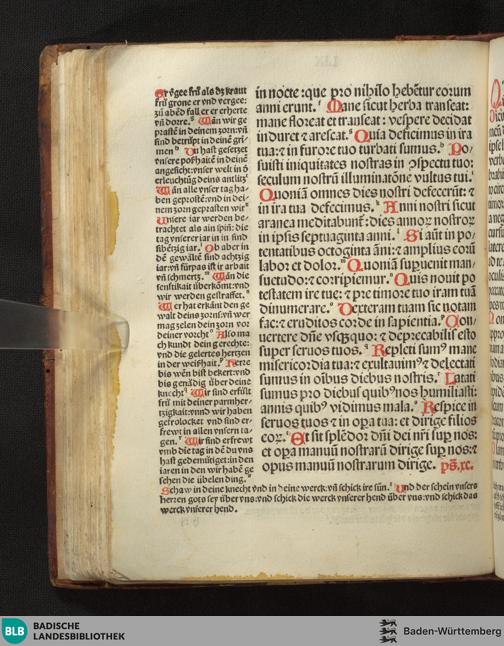 Er v̈gee frů als dz kraut
frů grone er vnd vergee:
zů abēd fall er er erherte
vn̄ dorre. Wan wir ge
praste in deinem zorn:vn̄
sind betrůpt in deinē gri-
men Du hast gesetzet
vnsere poßhait in deinē
angesicht:vnser welt in d̓
erleuchtūg deins antlitz
Wan alle vnser tag ha-
ben geprosten:vnd in dei-
nem zorn geprasten wir
Vnsere iar werden be-
trachtet als ain spin: die
tag vnserer iar in in sind
sibētzig iar. Ob aber in
dē gewåltē sind achtzig
iar:vn̄ fürpas ist ir arbait
vn̄ schmertz. Wan die
senftikait überkomt:vnd
wir werden gestraffet.
Wer hat erkant den ge
walt deins zorns:vn̄ wer
mag zelen dein zorn vor
deiner vorcht Also ma
ch kundt dein gerechte:
vnd die gelerten hertzen
in der weißhait. Herre
bis wēn bist bekert:vnd
bis genådig über deine
knecht Wir sind erfült
frů mit deiner parmher-
tzigkait:vnnd wir haben
gefrolocket vnd sind er-
frewt in allen vnsern ta-
gen. Wir sind erfrewt
vmb die tag in dē du vns
hast gedemütiget:in den
iaren in den wir habē ge
sehen die übelen ding.
Schaw in deine knecht vnd in deine werck:vn̄ schick ire sün. Und der schein vnsers
herren gots sey über vns:vnd schick die werck vnserer hend über vns:vnd schick das
werck vnserer hend.
in nocte: que pro nihilo habētur eorum
anni erunt. Mane sicut herba transeat:
mane floreat et transeat: vespere decidat
induret & arescat. Quia defecimus in ira
tua: & in furore tuo turbati sumus. Po-
suisti iniquitates nostras in ꝯspectu tuo:
seculum nostrū illuminatōne vultus tui.
Quoniā omnes dies nostri defecerūt: &
in ira tua defecimus. Anni nostri sicut
aranea meditabunt̄: dies annoꝝ nostroꝝ
in ipsis septuaginta anni. Si aūt in po-
tentatibus octoginta āni: & amplius eorū
labor et dolor. Quoniā supuenit man-
suetudo: & corripiemur. Quis nouit po
testatem ire tue: & pre timore tuo iram tuā
dinumerare. Dexteram tuam sic notam
fac: & eruditos corde in sapientia. Con-
uertere dn̄e vsq̄quo: & deprecabilis esto
super seruos tuos. Repleti sumꝰ mane
misericordia tua: & exultauimꝰ & delectati
sumus in oībus diebus nostris. Letati
sumus pro diebus quibꝰ nos humiliasti:
annis quibꝰ vidimus mala. Respice in
seruos tuos & in opa tua: et dirige filios
eoꝝ. Et sit splēdor dn̄i dei nr̄i sup nos:
et opa manuū nostrarū dirige sup nos: &
opus manuū nostrarum dirige. pš. xc.
BLB
BADISCHE
LANDESBIBLIOTHEK
Baden-Württemberg